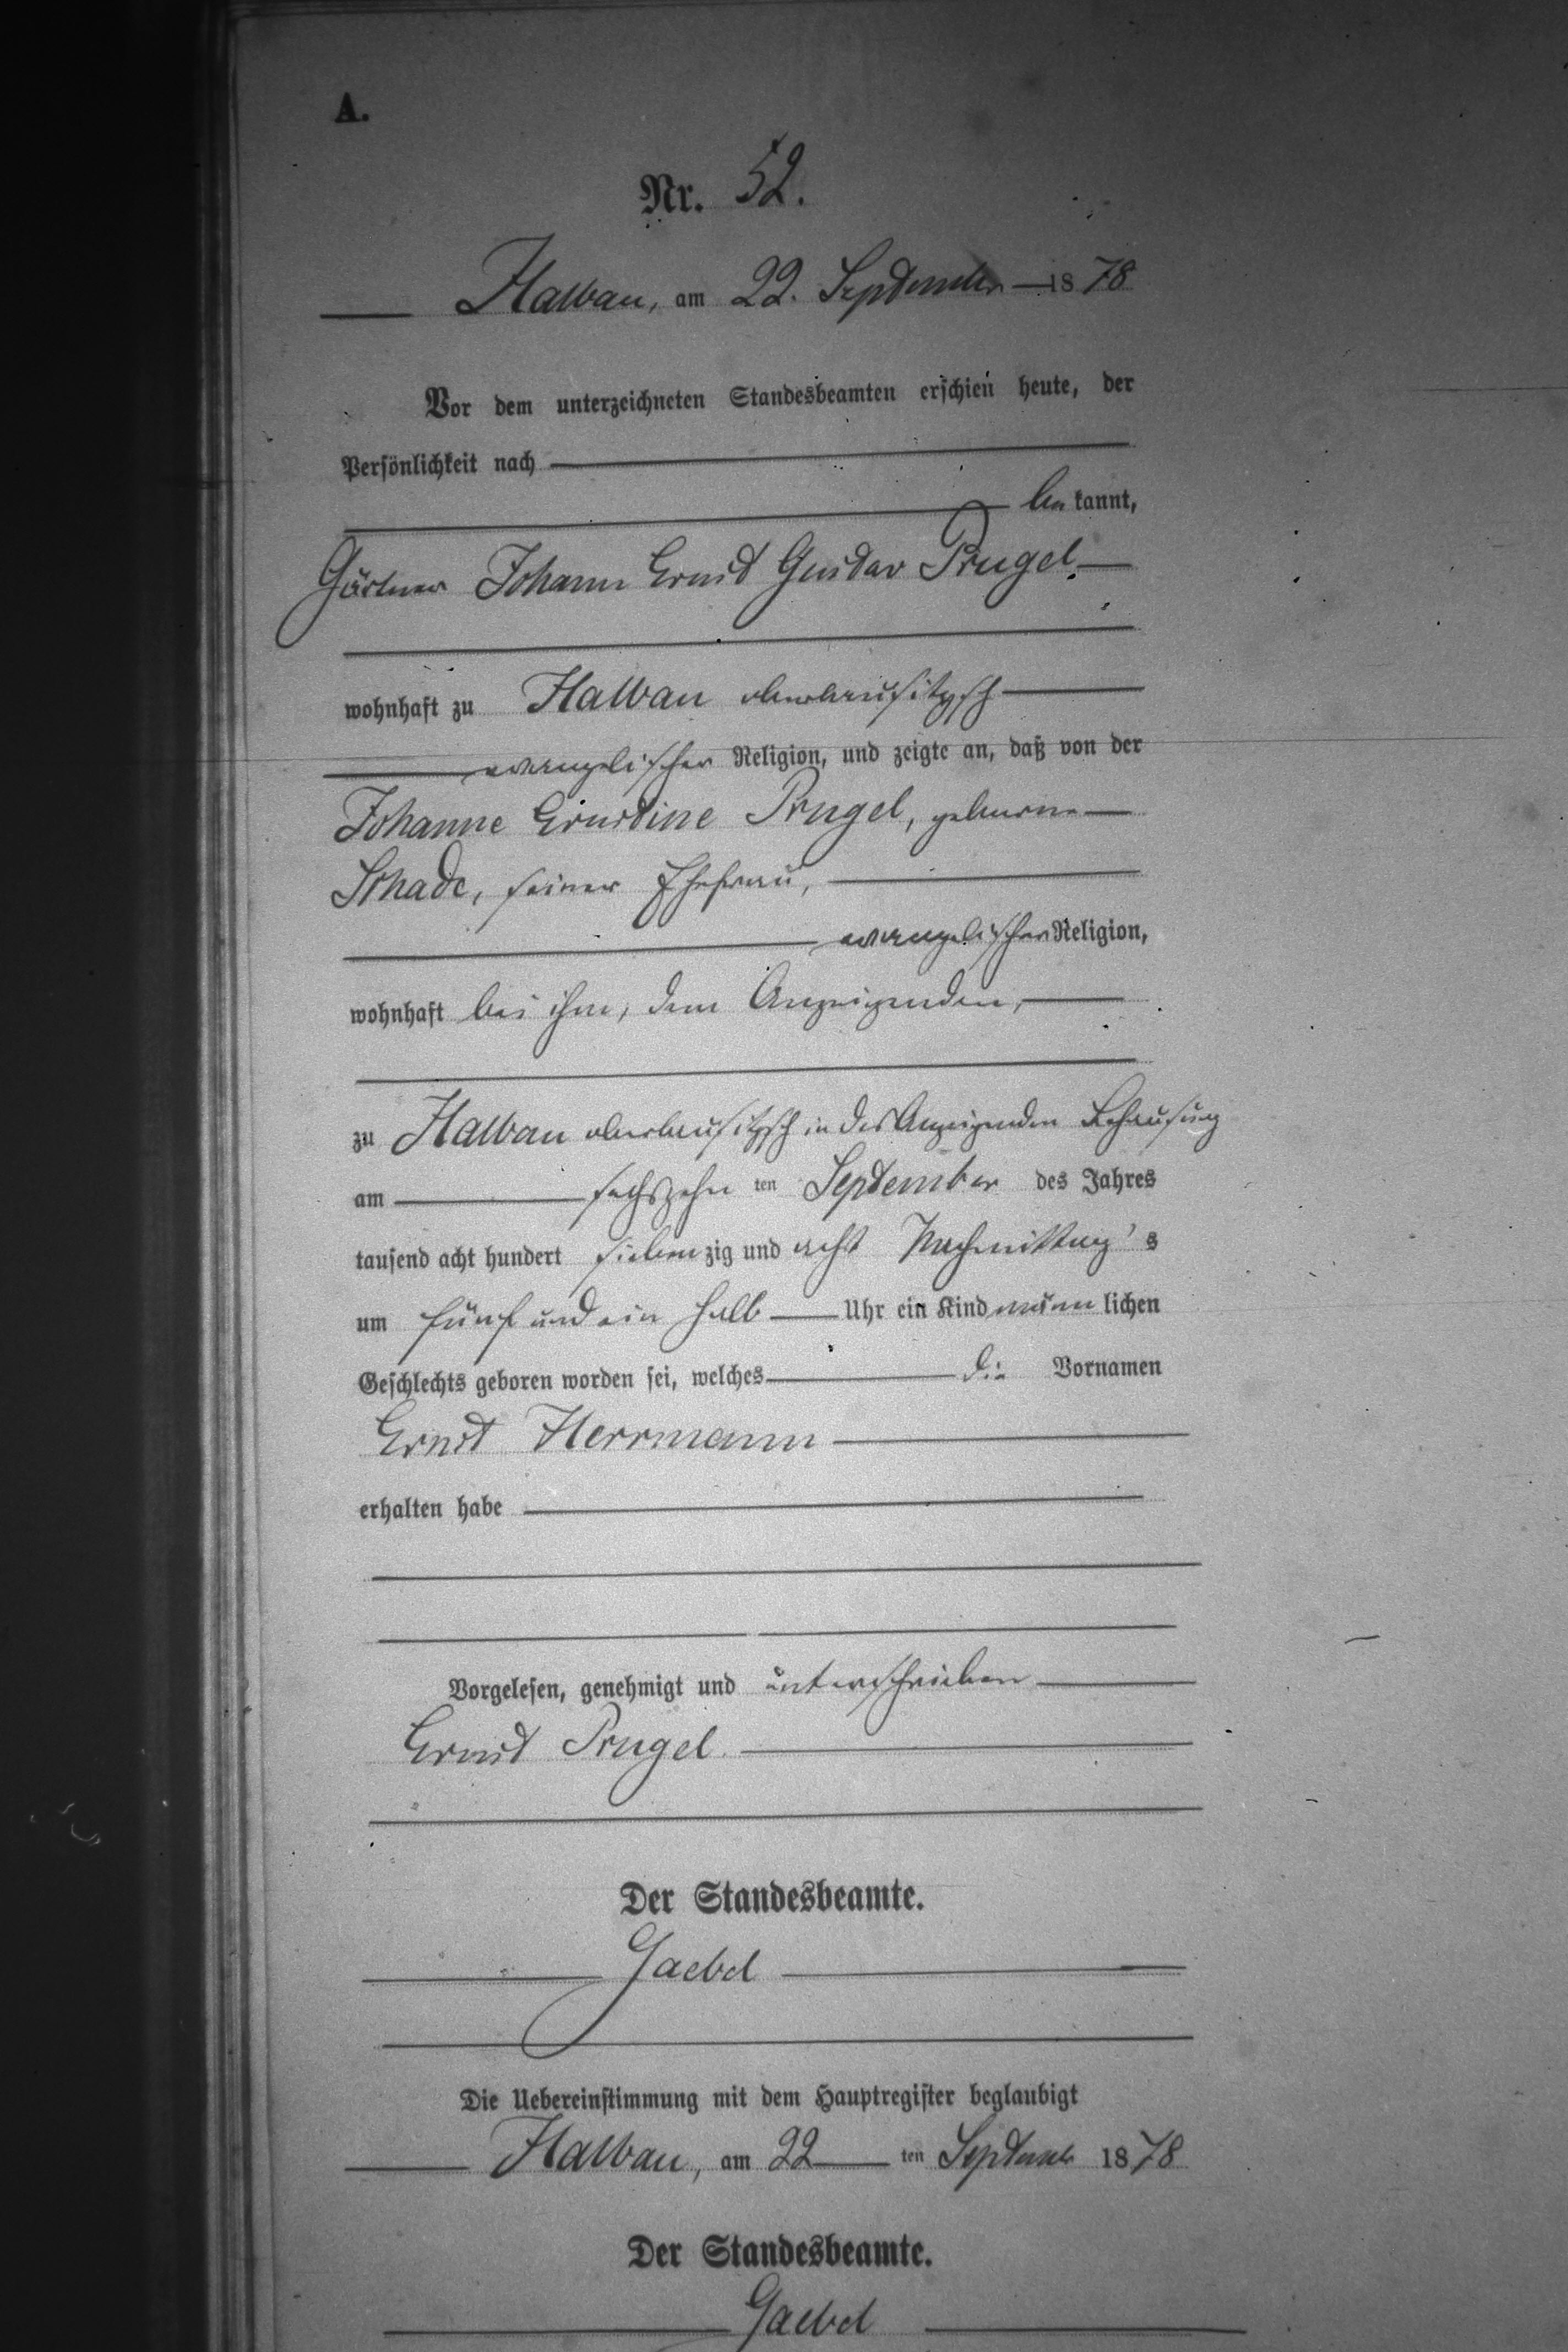 A.
Nr. 52.
Halbau, am 22. September 1878
Vor dem unterzeichneten Standesbeamten erschien heute, der
Persönlichkeit nach
be kannt,
Gärtner Johann Ernst Gustav Prugel
wohnhaft zu Halbau oberlausitzsch
evangelischer Religion, und zeigte an, daß von der
Johanne Ernestine Prugel, geborne
Schade, seiner Ehefrau,
evangelischer Religion,
wohnhaft bei ihm, dem Anzeigenden,
zu Halbau oberlausitzsch in des Anzeigenden Behausung
am sechszehn ten September des Jahres
tausend acht hundert sieben zig und acht Nachmittag's
um fünf und ein halb Uhr ein Kind männ lichen
Geschlechts geboren worden sei, welches die Vornamen
Ernst Herrmann
erhalten habe
Vorgelesen, genehmigt und unterschrieben
Ernst Prugel
Der Standesbeamte.
Gaebel
Die Uebereinstimmung mit dem Hauptregister beglaubigt
Halbau, am 22 ten Septemb 1878
Der Standesbeamte.
Gaebel